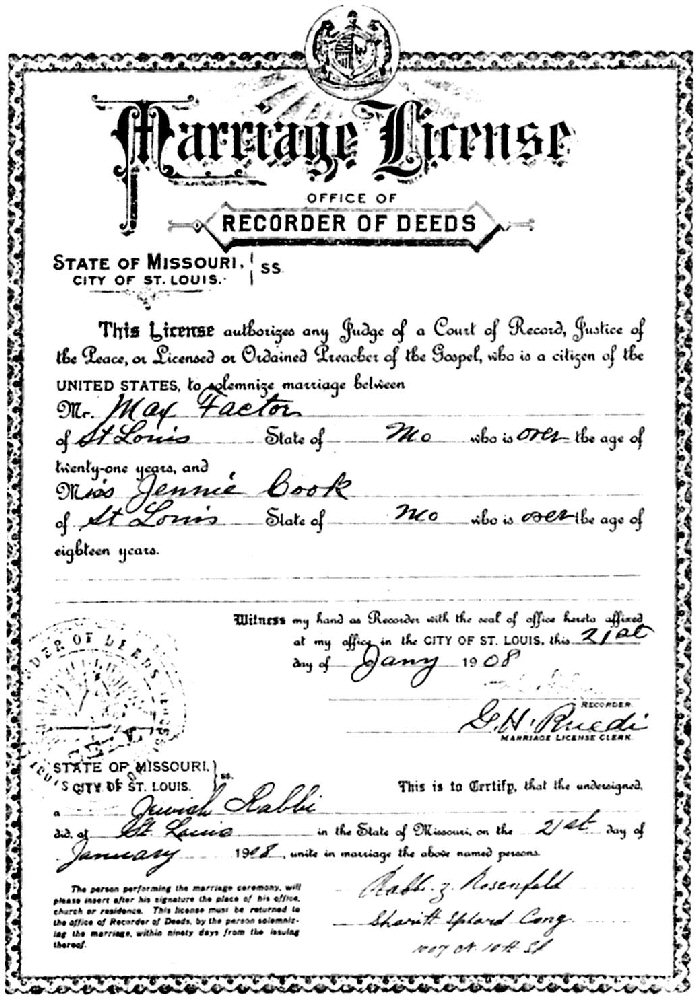 Marriage License
OFFICE OF
RECORDER OF DEEDS
STATE OF MISSOURI,
CITY OF ST. LOUIS. SS.
This License authorizes any Judge of a Court of Record, Justice of
the Peace, or Licensed or Ordained Preacher of the Gospel, who is a citizen of the
UNITED STATES, to solemnize marriage between
Mr. Max Factor
of St Louis State of Mo who is over the age of
twenty-one years, and
Miss Jennie Cook
of St Louis State of Mo who is over the age of
eighteen years.
Witness my hand as Recorder with the seal of office hereto affixed
at my office in the CITY OF ST. LOUIS, this 21st
day of Jany 1908
RECORDER.
G. H. Ruedi
MARRIAGE LICENSE CLERK.
DER OF DEEDS
STATE OF MISSOURI,
CITY OF ST. LOUIS. ss.
This is to Certify, that the undersigned,
a Jewish Rabbi
did, at St Louis in the State of Missouri, on the 21st day of
January 1908, unite in marriage the above named persons.
The person performing the marriage ceremony, will
please insert after his signature the place of his office,
church or residence. This license must be returned to
the office of Recorder of Deeds, by the person solemniz-
ing the marriage, within ninety days from the issuing
thereof.
Rabbi Z Rosenfeld
Cong
N 10th St